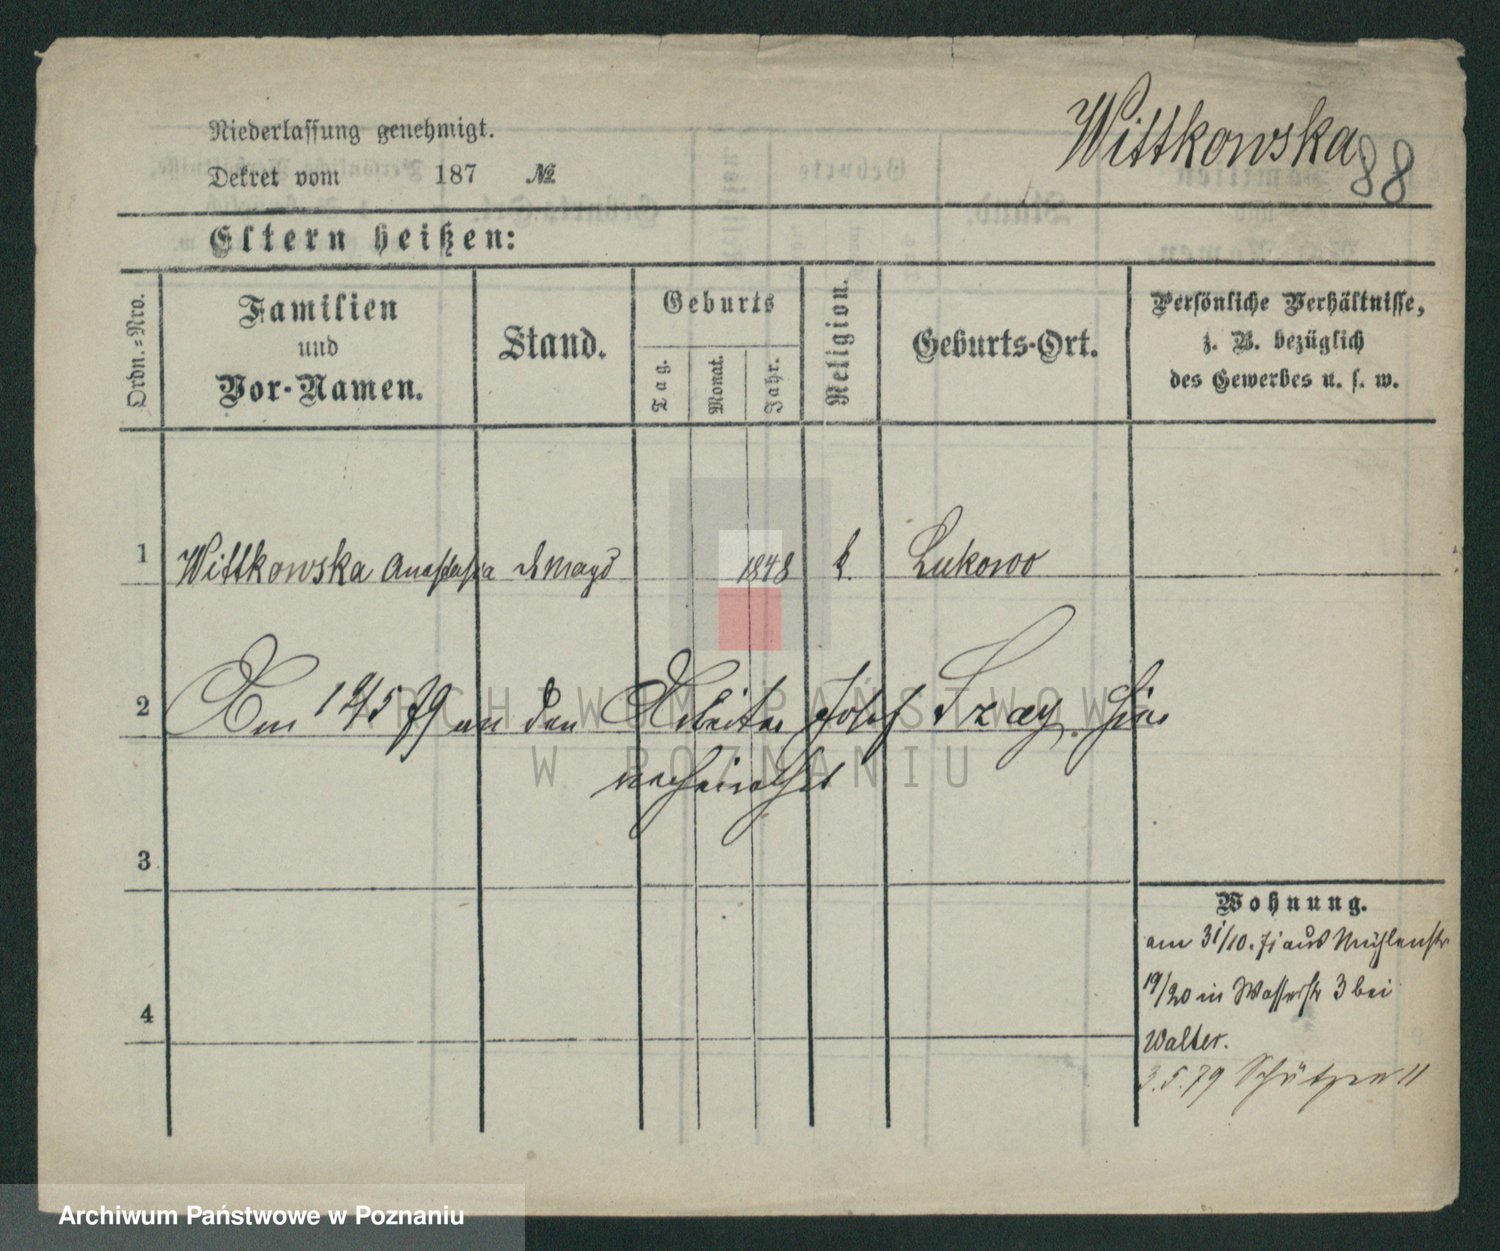 Wittkowska
88
Niederlassung genehmigt.
Dekret vom 187 №
Eltern heißen:
Ordn.-Nro.
Familien
und
Vor-Namen.
Stand.
Geburts
Tag.
Monat.
Jahr.
Religion.
Geburts-Ort.
Persönliche Verhältnisse,
z. B. bezüglich
des Gewerbes u. s. w.
1 Wittkowska Anastasia d. Magd 1848 k. Lukowo
2 Am 12/5 79 an den Arbeiter Josef Szay hier
verheirathet
3
4
Wohnung.
am 31/10. 71 aus Mühlenstr
19/20 in Wasserstr 3 bei
Walter.
3.5.79 Schützen 11
ARCHIWUM PAŃSTWOWE
W POZNANIU
Archiwum Państwowe w Poznaniu